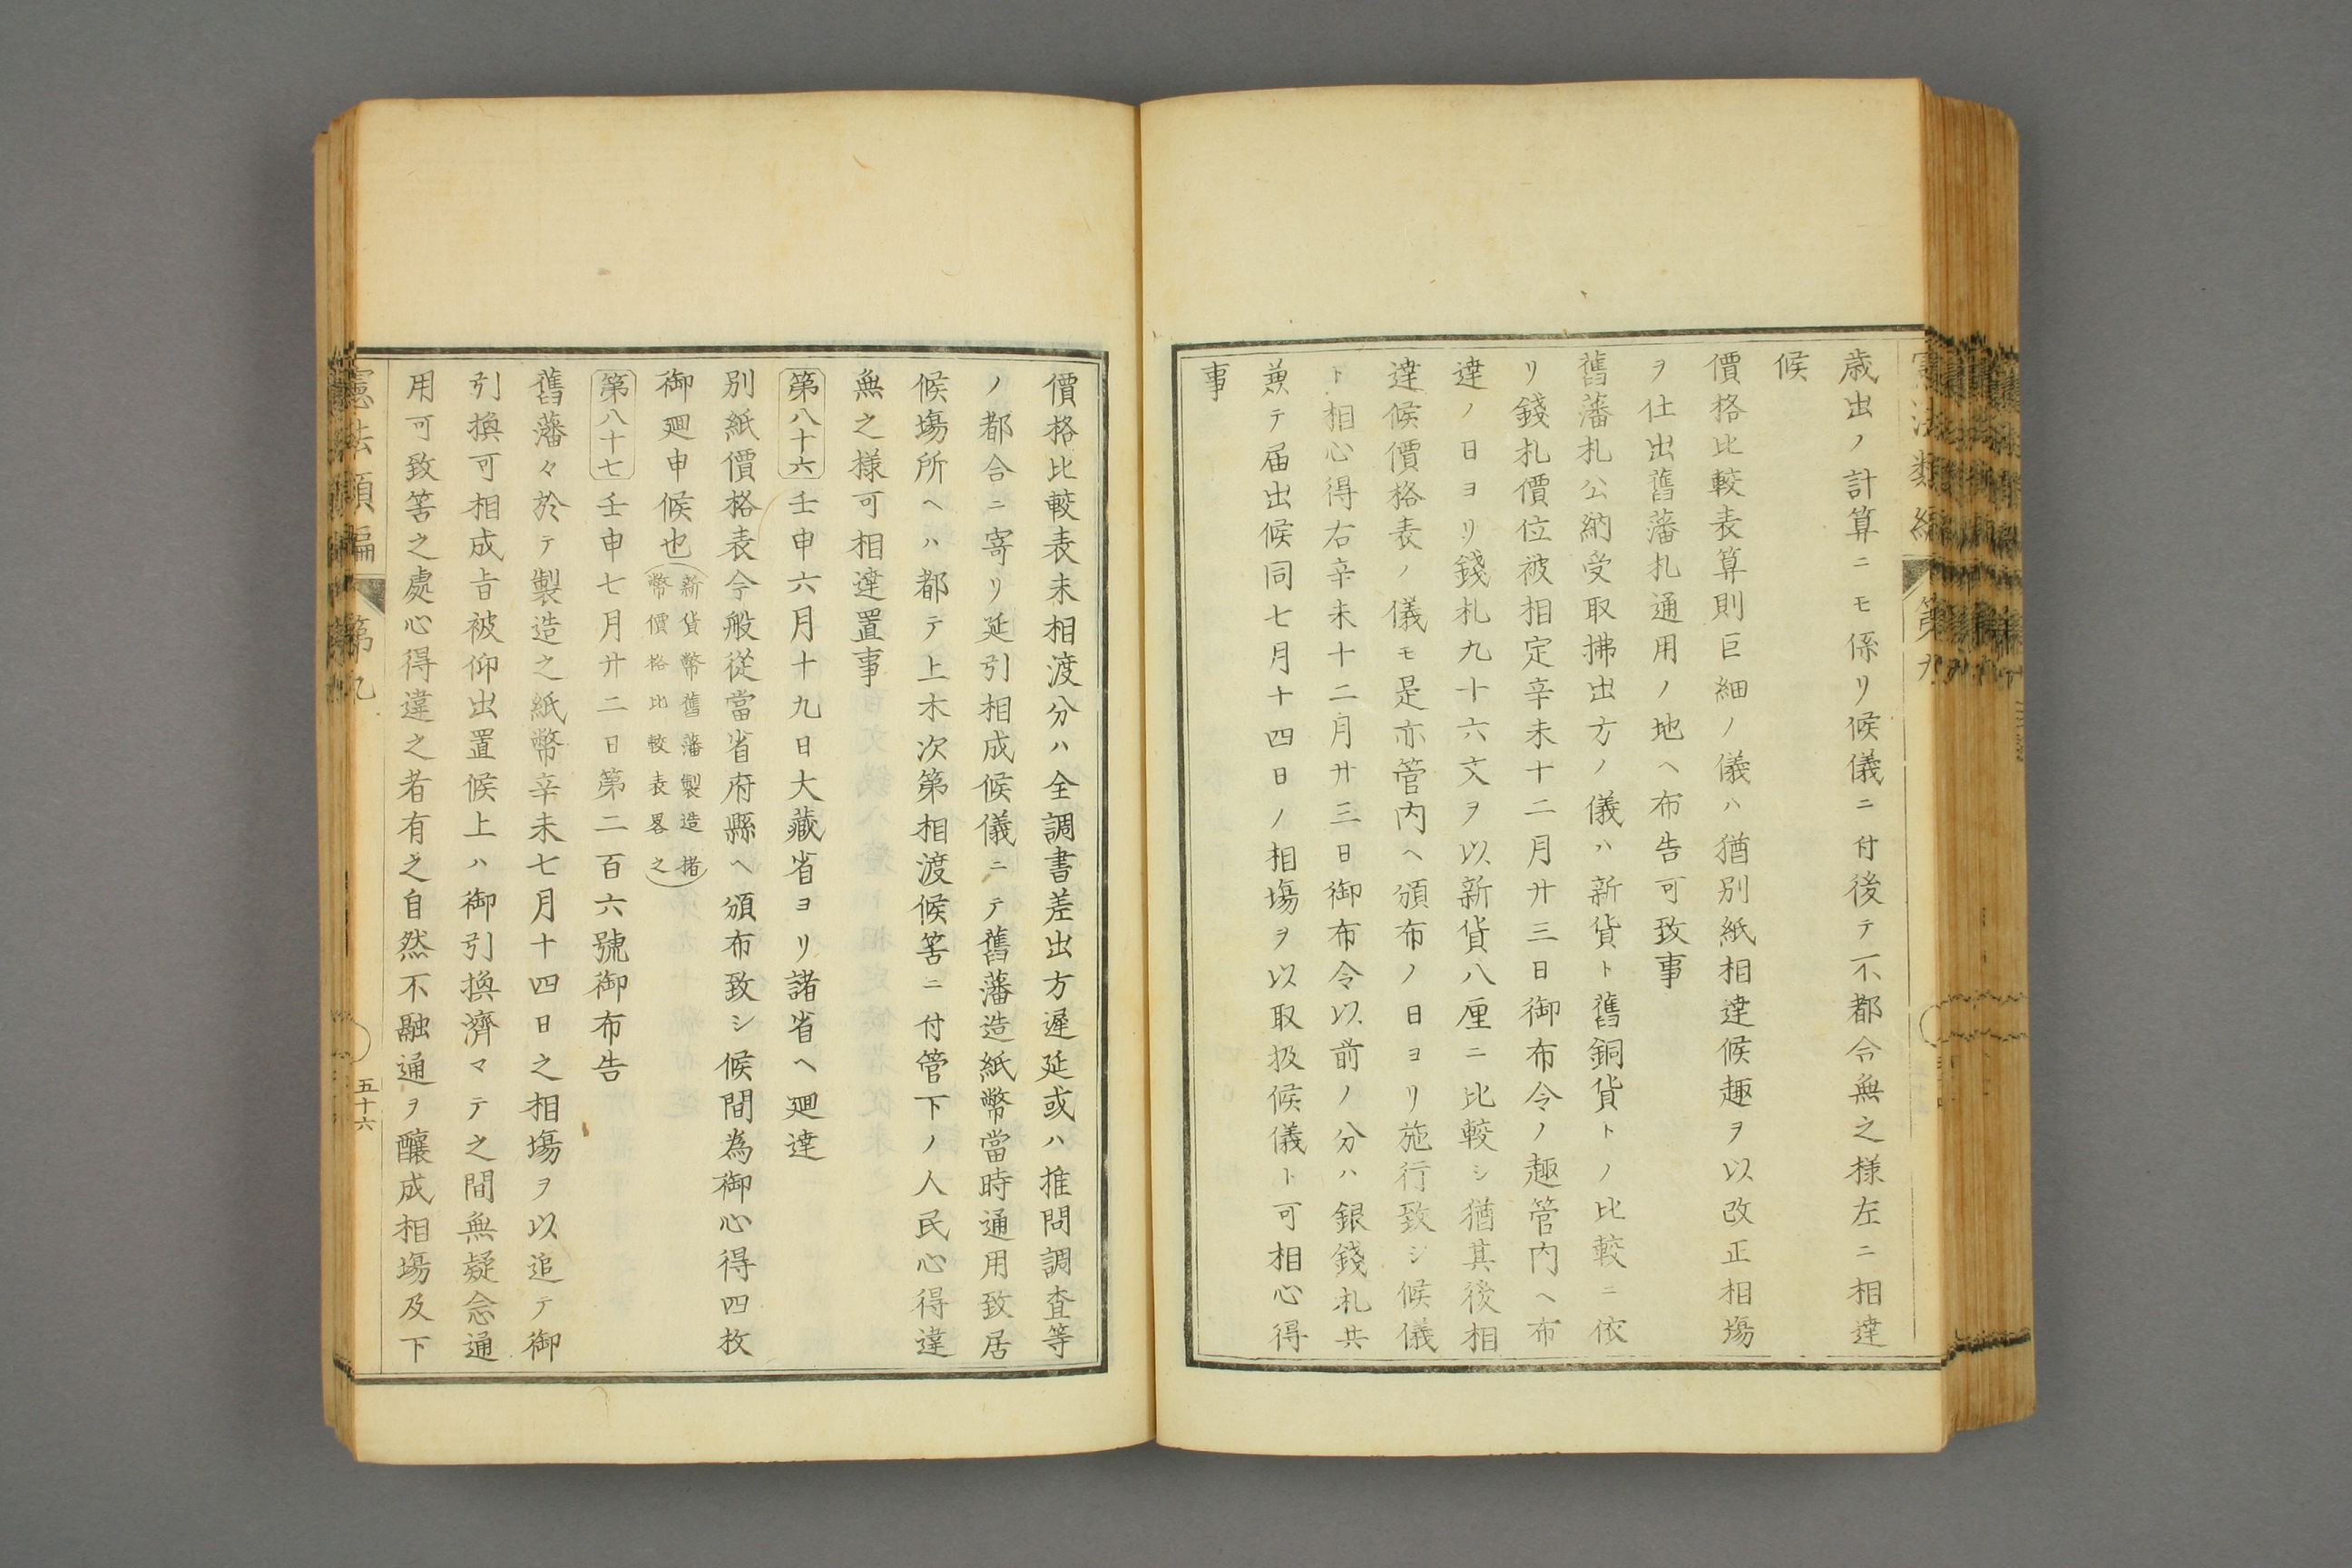 歳出ノ計算ニモ係リ候儀ニ付後テ不都合無之様左ニ相達
候
價格比較表算則巨細ノ儀ハ猶別紙相達候趣ヲ以改正相塲
ヲ仕出舊藩札通用ノ地ヘ布告可致事
舊藩札公納受取拂出方ノ儀ハ新貨ト舊銅貨トノ比較ニ依
リ錢札價位被相定辛未十二月廾三日御布令ノ趣管内ヘ布
達ノ日ヨリ錢札九十六文ヲ以新貨八厘ニ比較シ猶其後相
達候價格表ノ儀モ是亦管内ヘ頒布ノ日ヨリ施行致シ候儀
ト相心得右辛未十二月廾三日御布令以前ノ分ハ銀錢札共
兼テ届出候同七月十四日ノ相塲ヲ以取扱候儀ト可相心得
事
價格比較表未相渡分ハ全調書差出方遲延或ハ推問調査等
ノ都合ニ寄リ延引相成候儀ニテ舊藩造紙幣當時通用致居
候塲所ヘハ都テ上木次第相渡候筈ニ付管下ノ人民心得違
無之様可相達置事
第八十六 壬申六月十九日大藏省ヨリ諸省ヘ廻達
別紙價格表今般從當省府縣ヘ頒布致シ候間為御心得四枚
御廻申候也(新貨幣舊藩製造楮幣價格比較表畧之)
第八十七 壬申七月廾二日第二百六號御布告
舊藩々於テ製造之紙幣辛未七月十四日之相塲ヲ以追テ御
引換可相成㫖被仰出置候上ハ御引換濟マテ之間無疑念通
用可致筈之處心得違之者有之自然不融通ヲ釀成相塲及下
憲法類編 第九 五十六